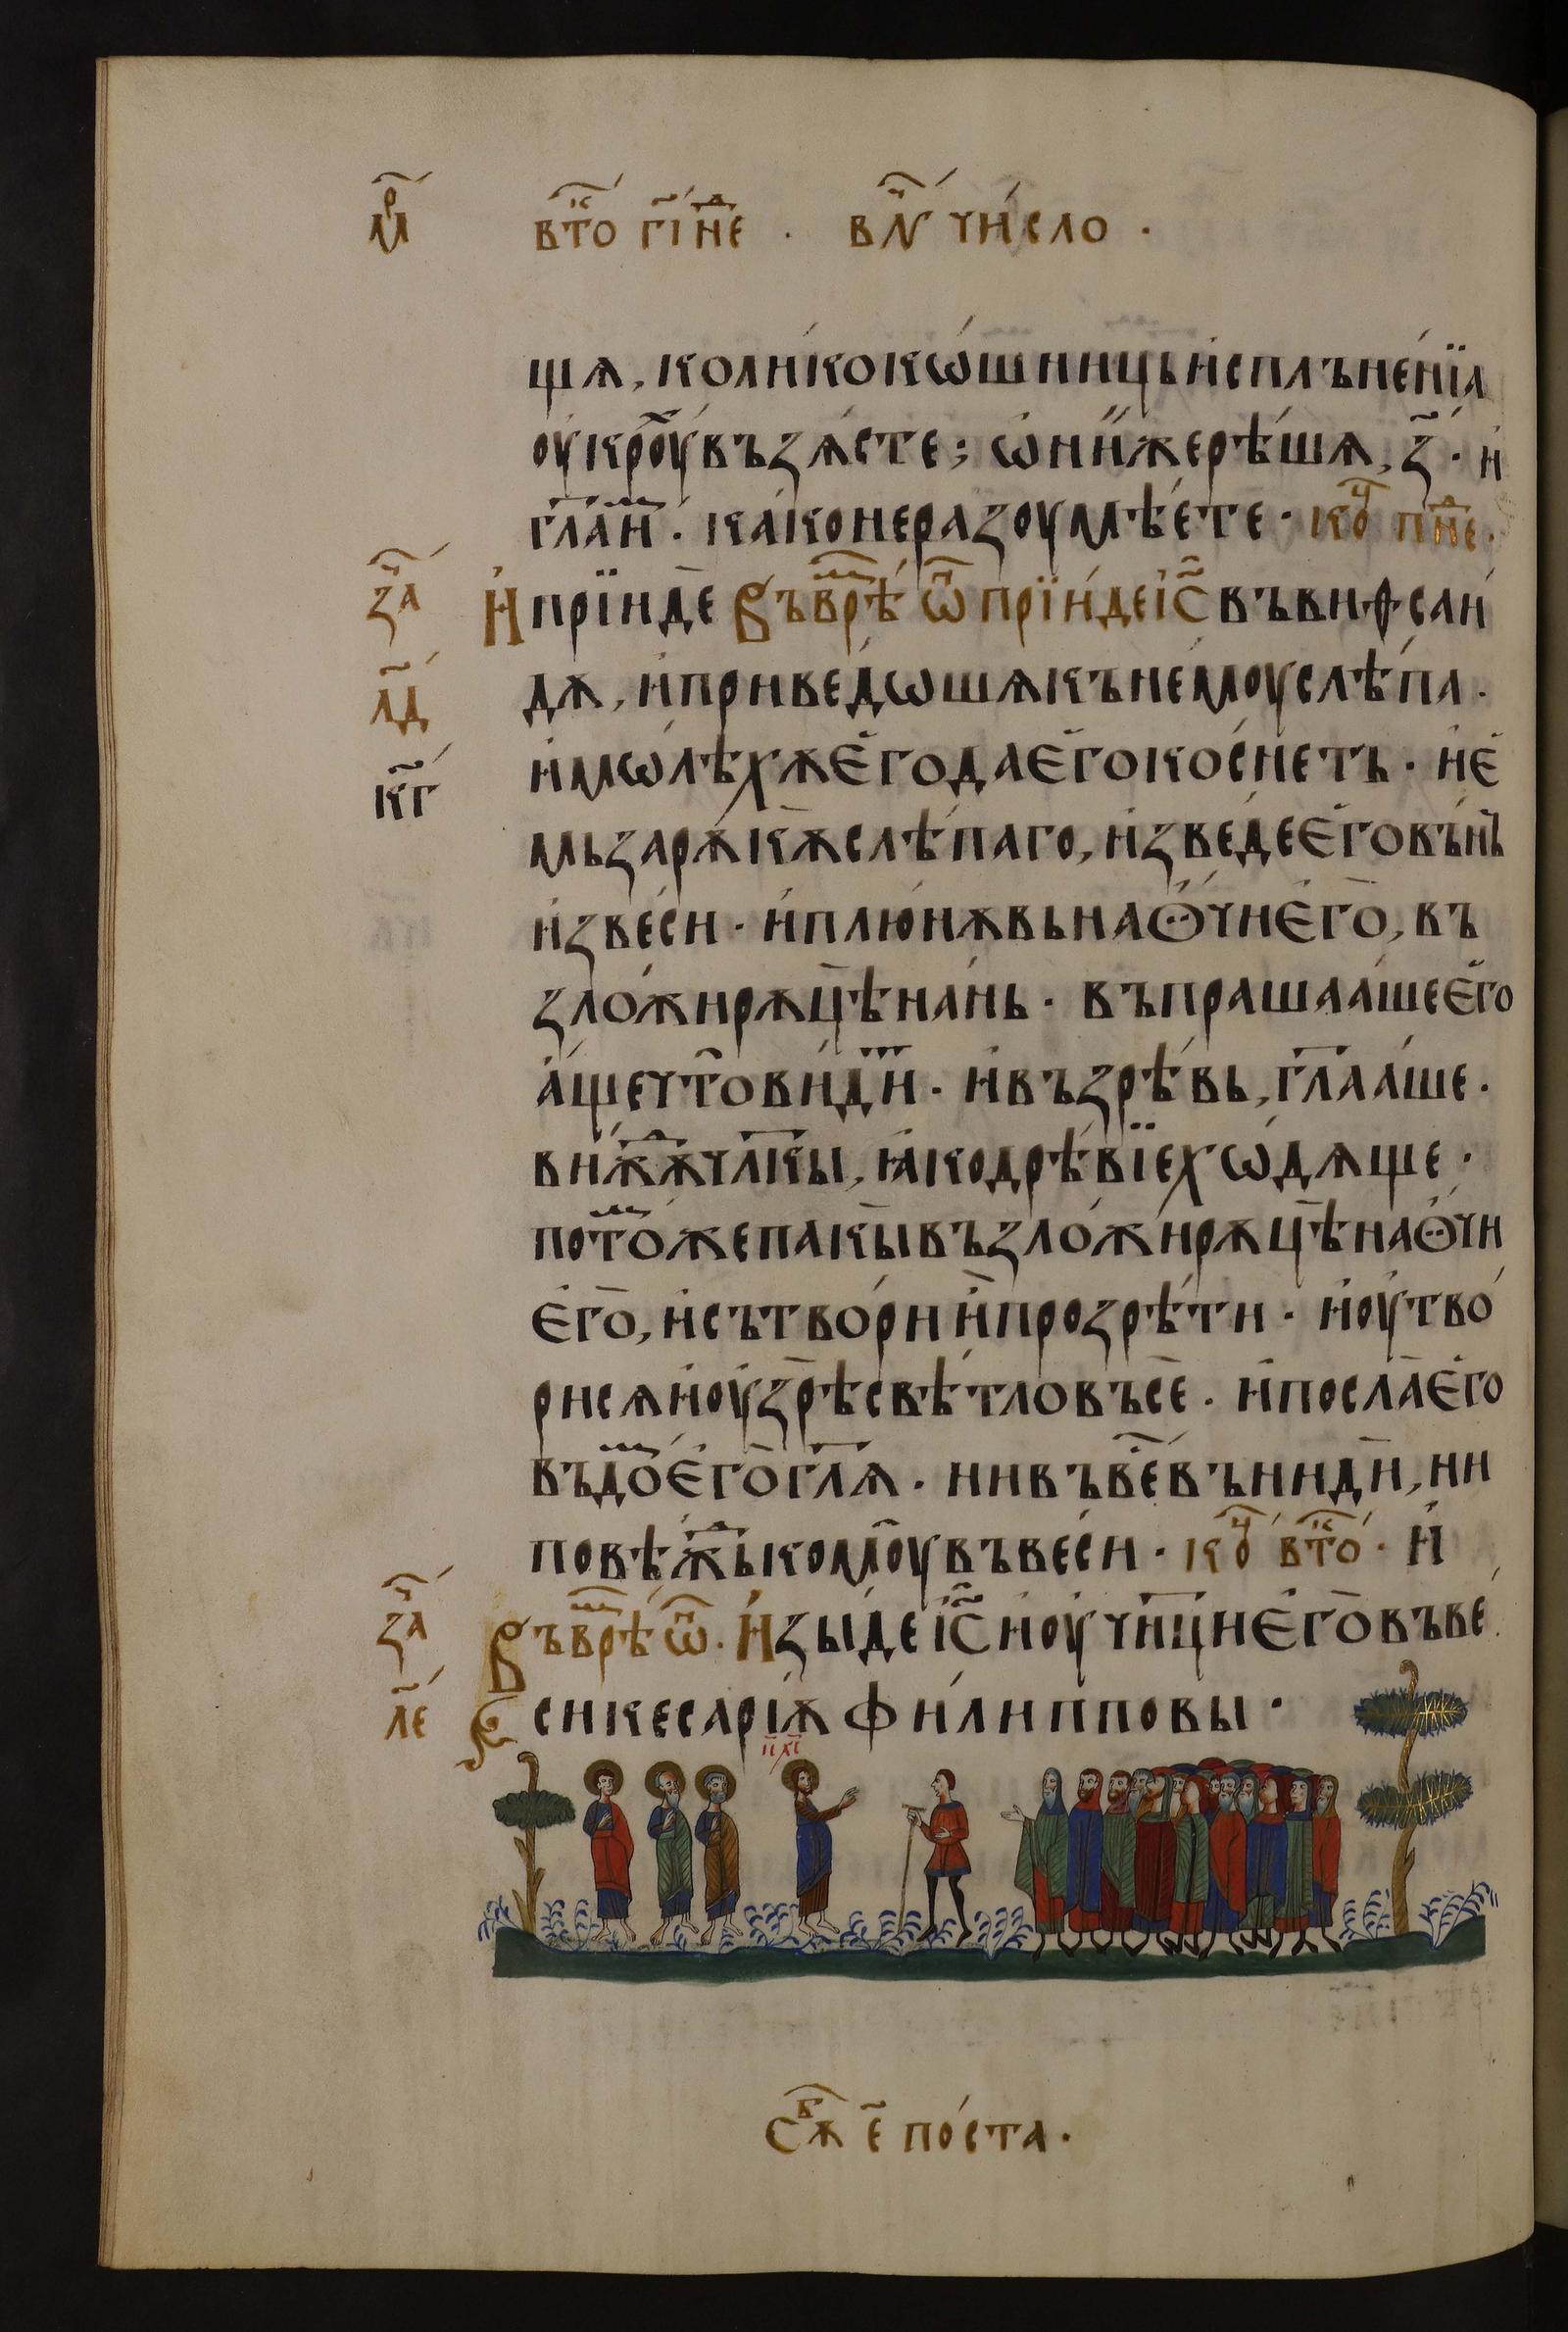 мр҃ вто҃ гі҃ не҃д . въ н҃ чи́сло .
щѧ, коли́ко кѡ́шниць и҆спльне́нїа
оу҆кро́у въззѧ́сте; ѡ҆ни́ же рѣ́шѧ, з҃ · и҆
гл҃а и҆́м . ка́ко не разоумѣ́ете · ко҃ц пн҃де .
за҃ч И҆ прїиде Въ вр҃ѣм ѡ҆́н прїи́де і҆с҃ въ виѳсаи́
л҃д дѫ, и҆ приве́дѡшѧ къ немоу слѣ́па .
к҃г и҆ мѡ́лѣхѫ є҆го да є҆го ко́снетъ · и҆ є҆
мь за рѫ́кѫ слѣ́паго, и҆зве́де є҆го вънъ
и҆з ве́си · и҆ плю́нѫвь на ѻ҆́чи є҆го̀, въ
зло́жи рѫ́цѣ на́нь · въпрашаа́ше є҆го
а҆́ще что̀ ви́дит · и҆ въ́зрѣ́вь, гл҃аа́ше .
ви́ждѫ чл҃кы, ꙗ҆́ко дрѣ́вїе хѡ́дѧще ·
пото́м же пакы възло́жи рѫцѣ на ѻ҆́чи
є҆го̀, и҆ сътво́ри и҆̀ прозрѣ́ти · и҆ оу҆тво́
рисѧ и҆ оу҆зрѣ̀ свѣ́тло въсѐ . и҆ посла̀ є҆го
въ до́м є҆го̀ гл҃ѧ . ни въ ве́сь въниди, ни
повѣ́ждь комоу̀ въ ве́си · ко҃ц вто҃ · И҆
за҃ч Въ вр҃ѣм ѡ҆́н . И҆зы́де і҆с҃ и҆ оу҆чн҃ци є҆го̀ въ ве́
л҃е си кесарі́ѫ фи́липповы ·
і҃с х҃с
сѫ҃в е҃ по́ста .